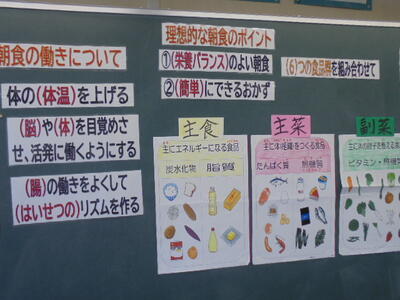 朝食の働きについて
体の(体温)を上げる
(脳)や(体)を目覚めさ
せ、活発に働くようにする
(腸)の働きをよくして
(はいせつの)リズムを作る
理想的な朝食のポイント
①(栄養バランス)のよい朝食
②(簡単)にできるおかず
(6)つの食品群を組み合わせて
主食
主にエネルギーになる食品
炭水化物 脂質
主菜
主に体組織をつくる食品
たんぱく質 無機質
副菜
主に体の調子を整える食
ビタミン・無機質